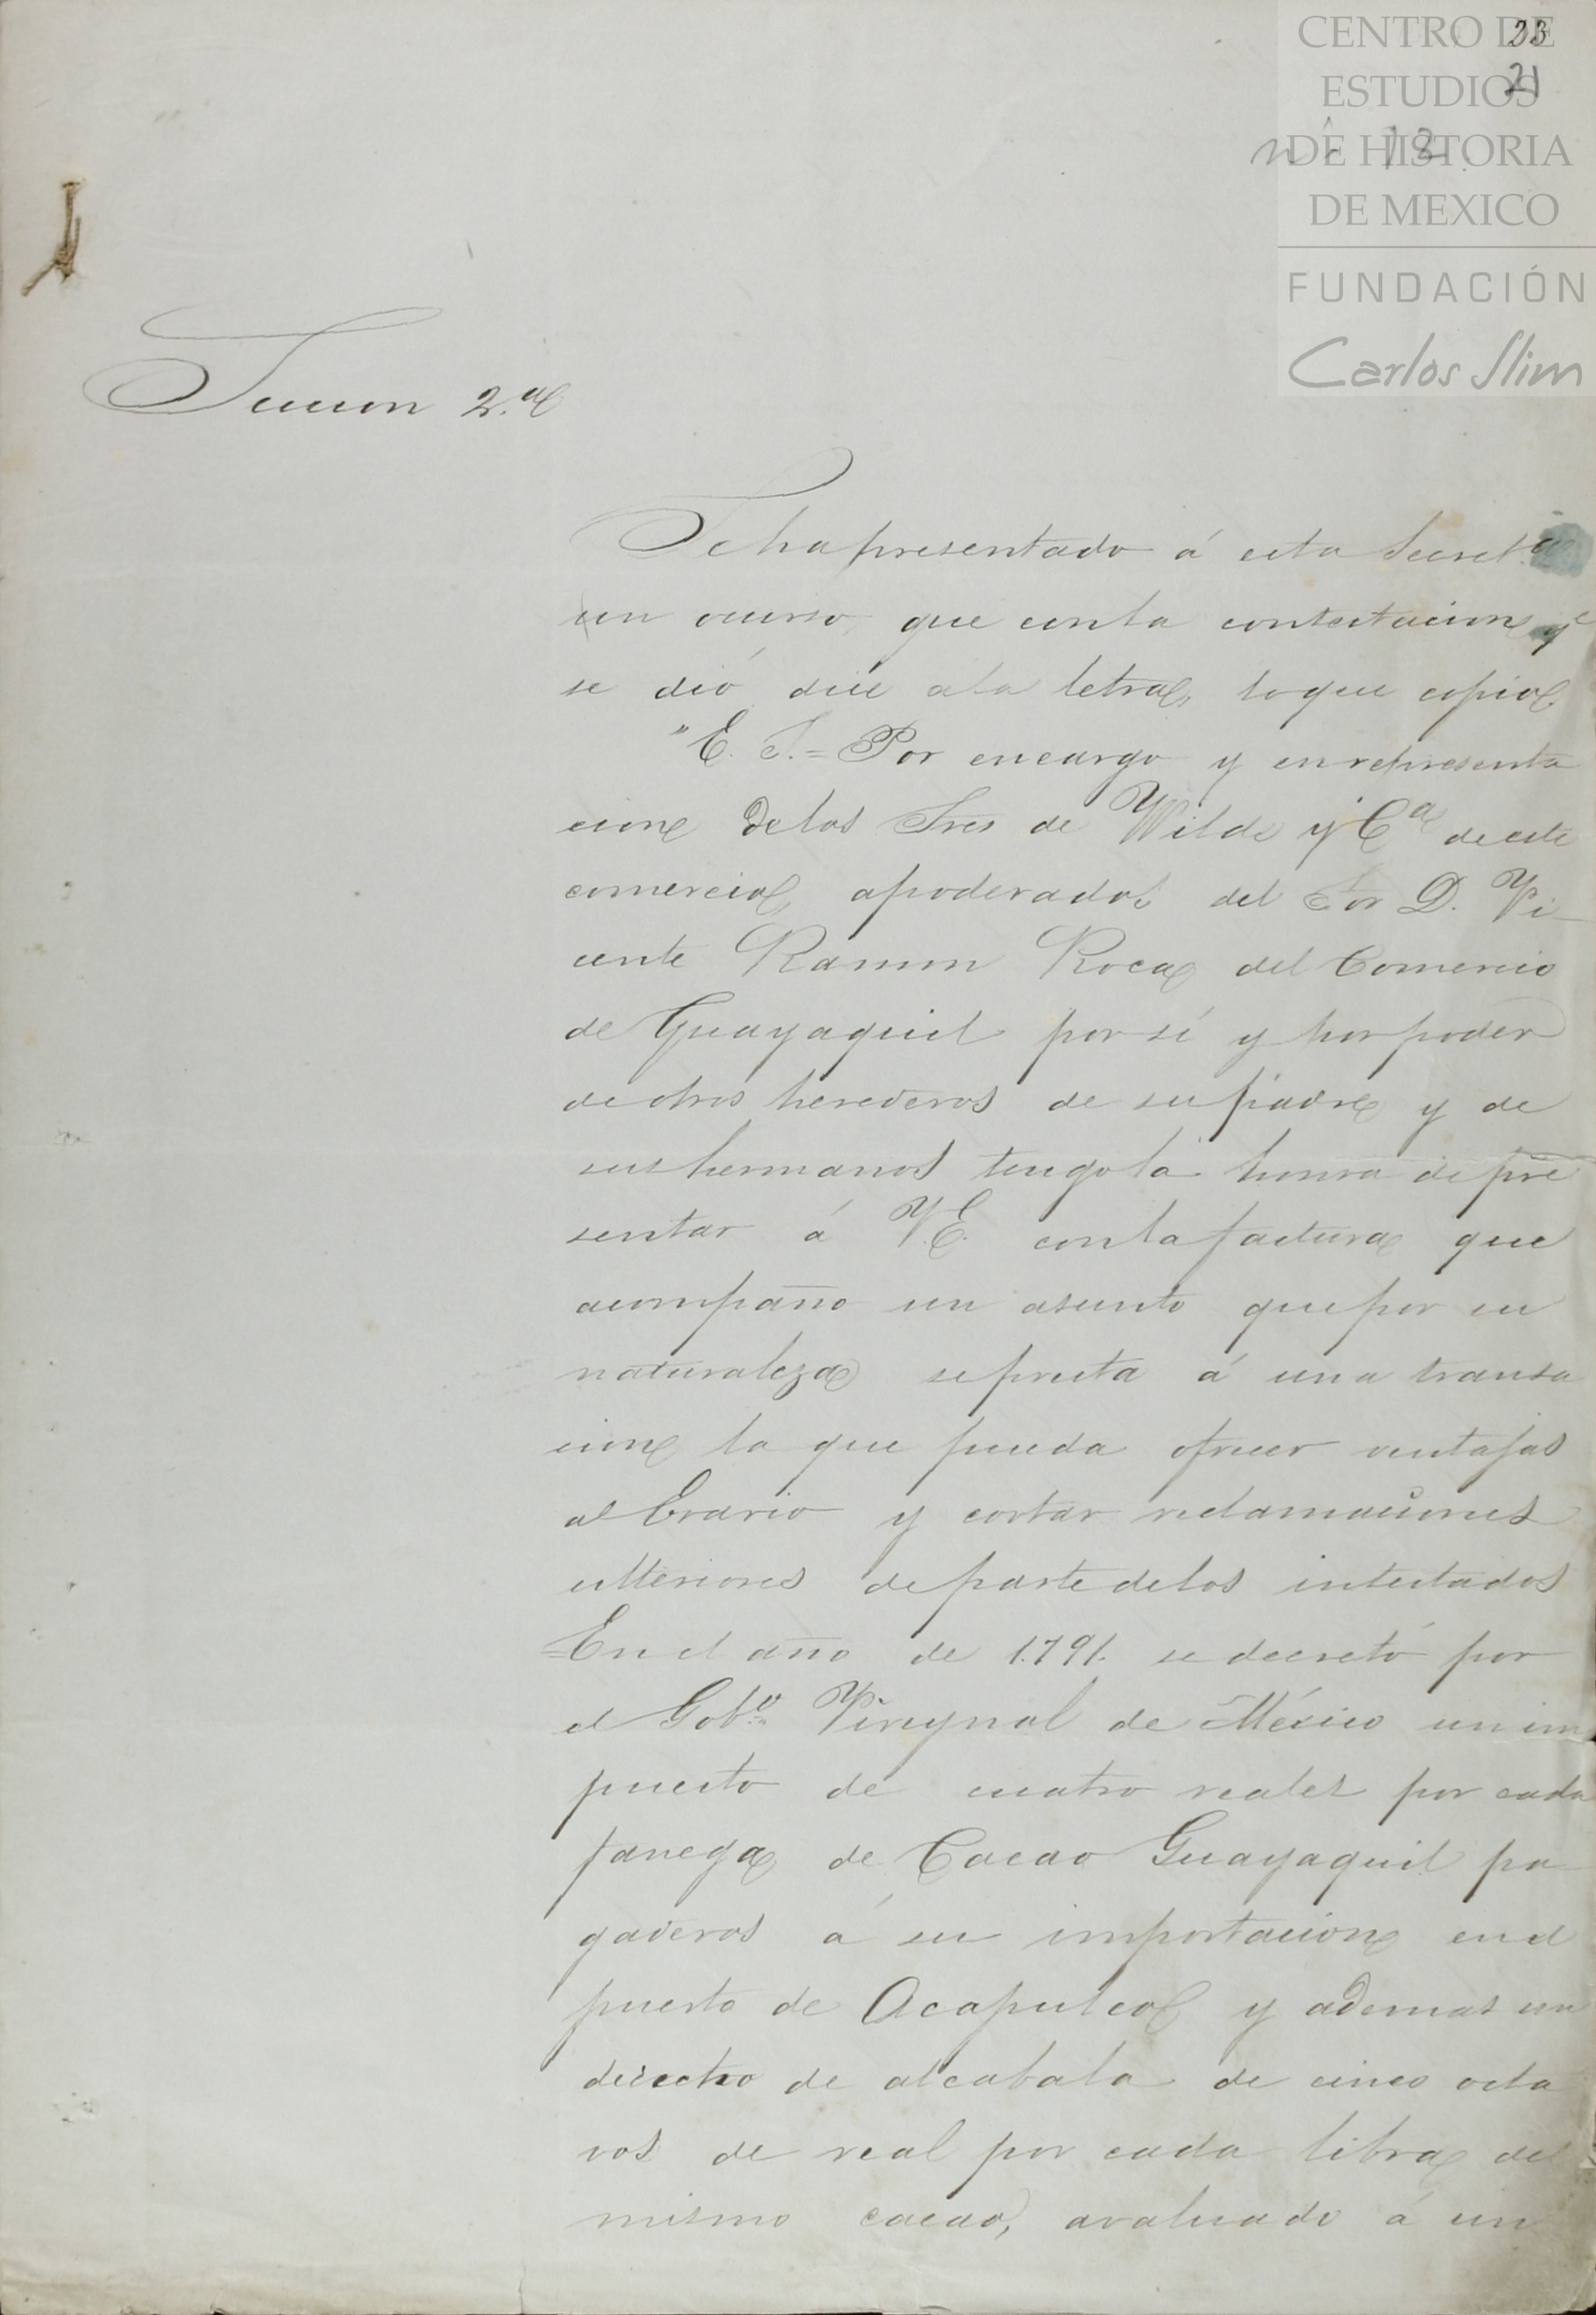 CENTRO DE
ESTUDIOS
DE HISTORIA
DE MEXICO
FUNDACIÓN
Carlos Slim
23
21
nº 12
Seccion 2.ª
Se ha presentado á esta Secret.ª
un ocurso, que con la contestacion q.e
se dió dice ala letra, loque copio.
"E. S.= Por encargo y en representa
cion delos Sres de Wilde y C.ª de este
comercio, apoderados del Sor D. Vi
cente Ramon Roca del Comercio
de Guayaquil por sí y por poder
de otros herederos de su padre y de
sus hermanos tengo la honra de pre
sentar á V.E. con la factura que
acompaño un asunto que por su
naturaleza se presta á una transa
cion la que pueda ofrecer ventajas
al Erario y cortar reclamaciones
ulteriores de parte delos intestados
=En el año de 1.791. se decretó por
el Gob.º Vireynal de México un im
puesto de cuatro reales por cada
fanega de Cacao Guayaquil pa
gaderos á su importacion en el
puerto de Acapulco y ademas un
derecho de alcabala de cinco octa
vos de real por cada libra del
mismo cacao, avaluado á un